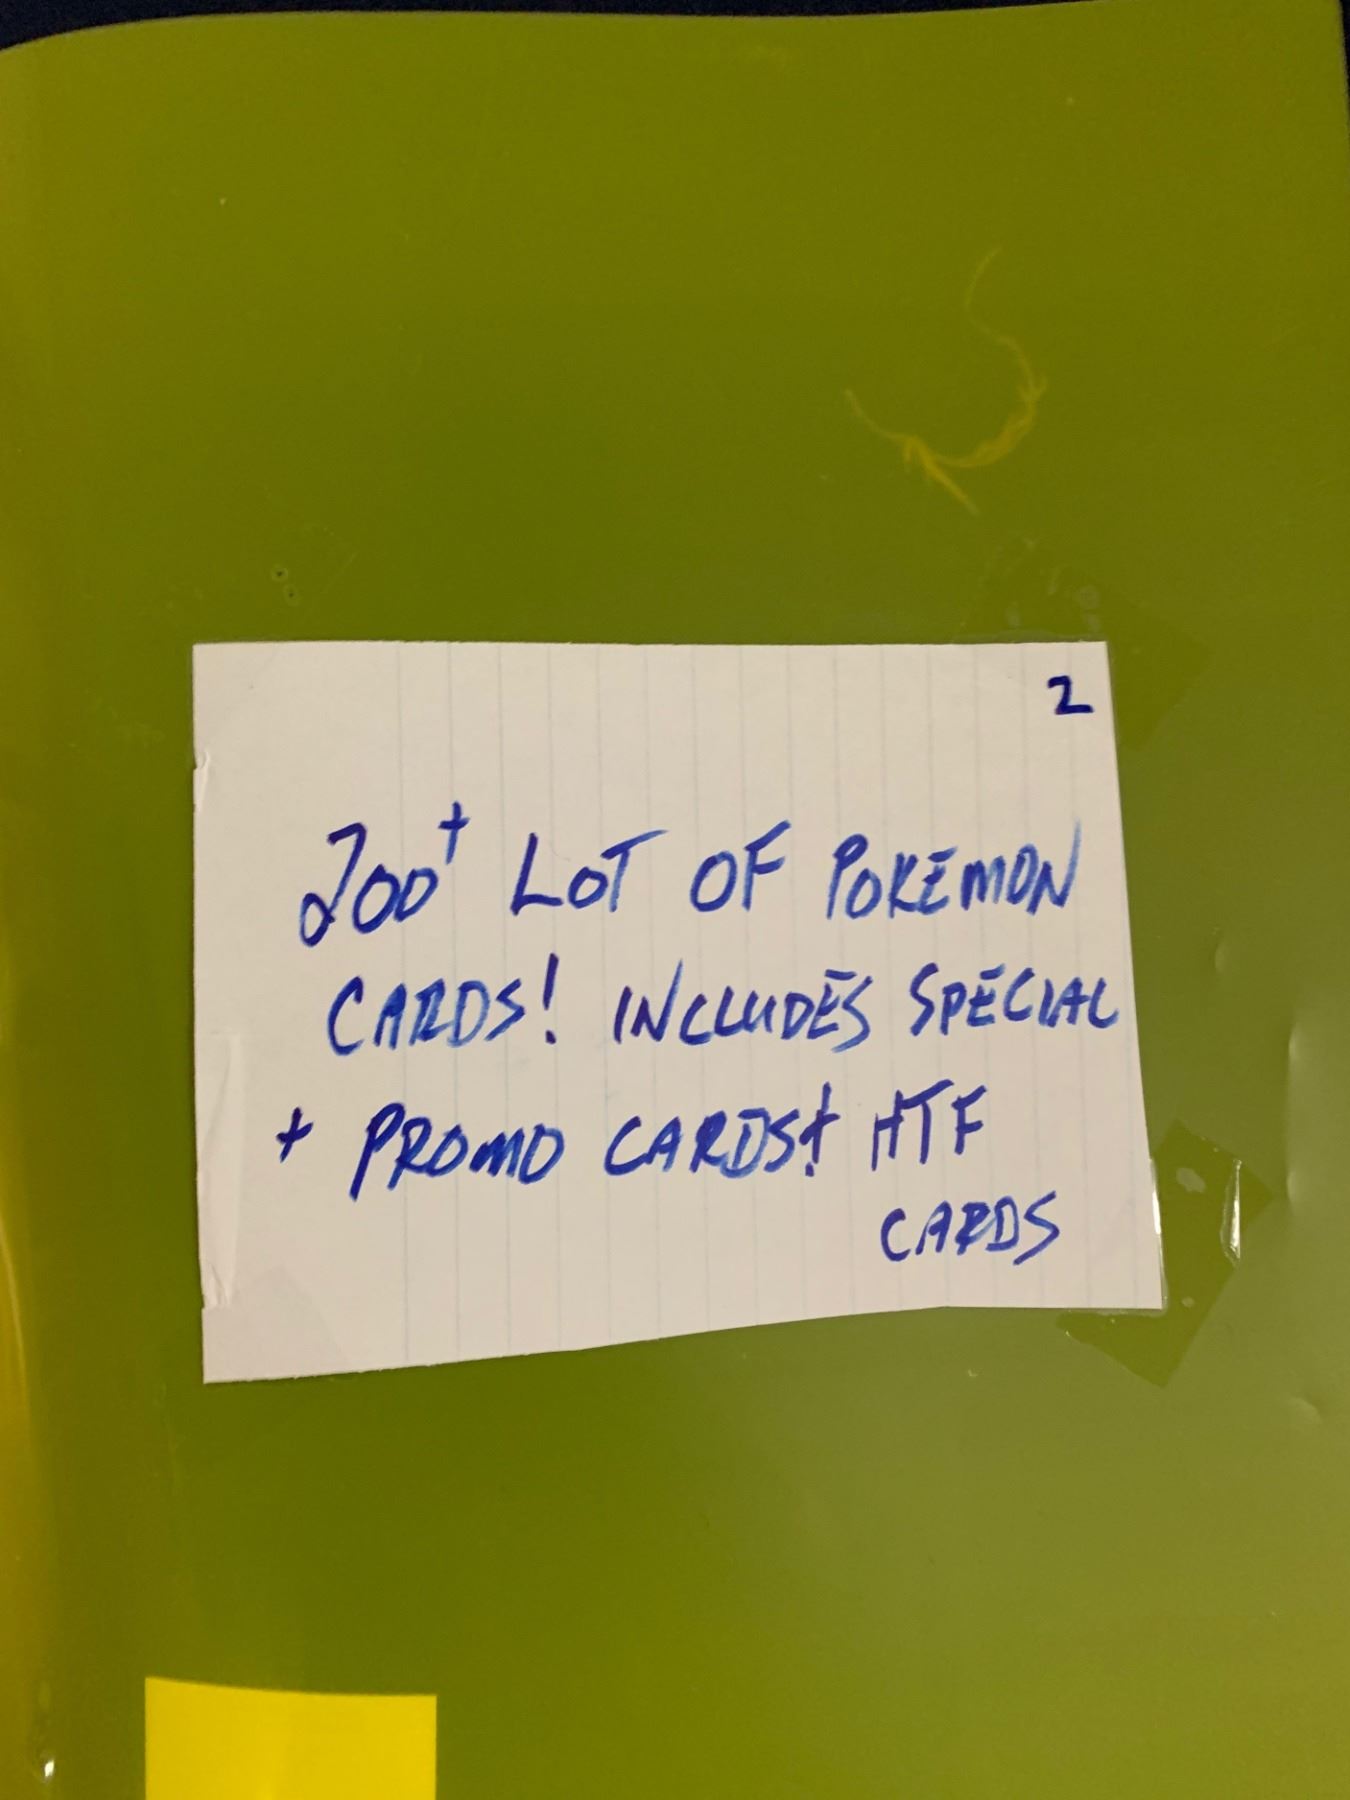 2
200+ LOT OF POKEMON
CARDS! INCLUDES SPECIAL
+ PROMO CARDS! + HTF
CARDS